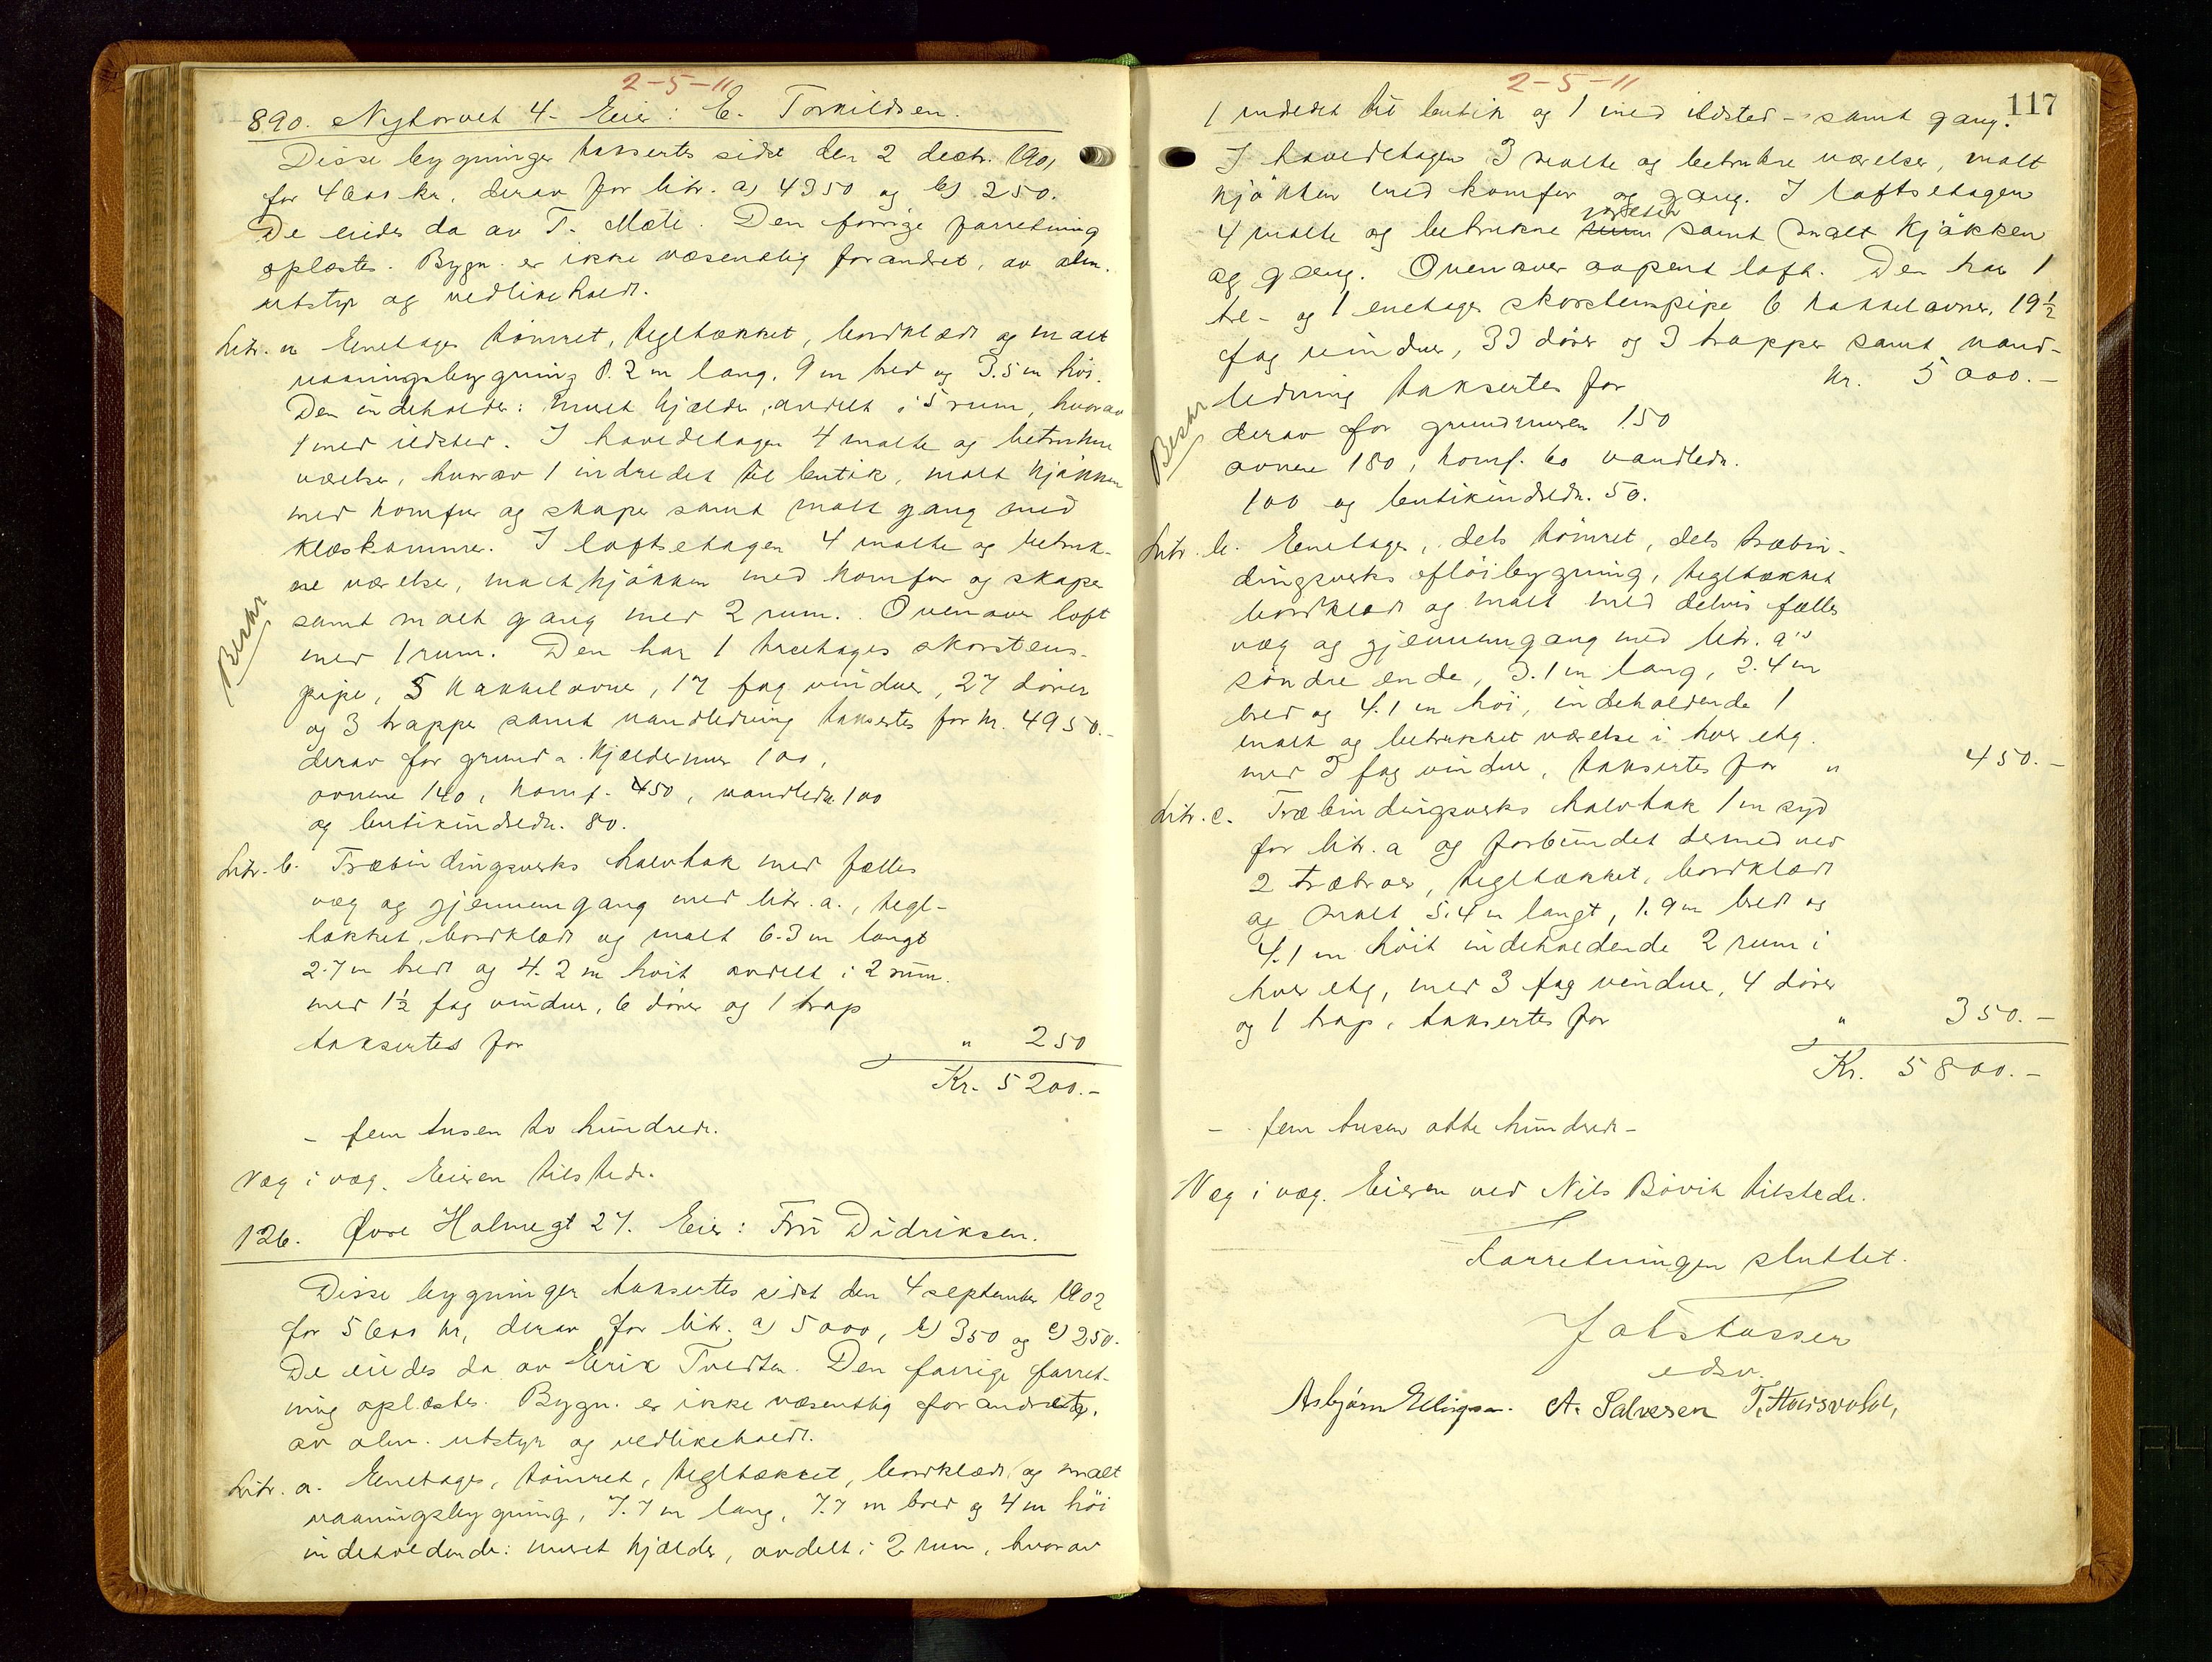 2-5-11
890. Nytorvet 4. Eier: E. Torkildsen.
Disse bygninger taksertes sidst den 2 decbr. 1901
for 4600 kr. derav for litr. a) 4350 og b) 250.
De eiedes da av T. Mæle. Den forrige forretning
oplæstes. Bygn. er ikke væsentlig forandret, av alm.
utstyr og vedlikeholdt.
Litr. a Enetages tømret, tegltækket, bordklædt og malt
vaaningsbygning 8.2 m lang, 9 m bred og 3.5 m høi.
Den indeholder: muret kjælder, avdelt i 5 rum, hvorav
1 med ildsted. I hovedetagen 4 malte og betrukne
værelser, hvorav 1 indredet til butik, malt kjøkken
med komfur og skape samt malt gang med
klæskammer. I loftsetagen 4 malte og betruk-
ne værelser, malt kjøkken med komfur og skape
samt malt gang med 2 rum. Ovenover loft
med 1 rum. Den har 1 treetages skorstens-
pipe, 5 kakkelovner, 17 fag vinduer, 27 dører
og 3 trapper samt vandledning taksertes for kr. 4950.-
derav for grund- og kjældermur 100,
ovnene 140, komf. 50, vandledn. 100
og butikindredn. 80.
Beskr
Litr. b. Træbindingsverks halvtak med fælles
væg og gjennemgang med litr. a., tegl-
tækket, bordklædt og malt 6.3 m langt
2.7 m bredt og 4.2 m høit avdelt i 2 rum.
med 1½ fag vinduer, 6 dører og 1 trap
taksertes for " 250
Kr. 5200.-
- fem tusen to hundrede.
Væg i væg. Eieren tilstede.
126. Øvre Holmegt 27. Eier: Fru Didriksen.
Disse bygninger taksertes sidst den 4 september 1902
for 5600 kr, derav for litr. a) 5000, b) 350 og c) 250.
De eiedes da av Erik Tvedten. Den forrige forret-
ning oplæstes. Bygn. er ikke væsentlig forandret,
av alm. utstyr og vedlikeholdt.
Litr. a. Enetages, tømret, tegltækket, bordklædt og malt
vaaningsbygning, 7.7 m lang, 7.7 m bred og 4 m høi
indeholdende: muret kjælder, avdelt i 2 rum, hvorav
2-5-11
117
1 indredet til butik og 1 med ildsted - samt gang.
I hovedetagen 3 malte og betrukne værelser, malt
kjøkken med komfur og gang. I loftsetagen
4 malte og betrukne værelser samt malt kjøkken
og gang. Ovenover aapent loft. Den har 1
tre- og 1 enetages skorstenspipe 6 kakkelovner, 19½
fag vinduer, 33 dører og 3 trapper samt vand-
ledning taksertes for kr. 5000.-
derav for grundmuren 150
ovnene 180, komf. 60 vandledn.
100 og butikindredn. 50.
Beskr
Litr. b. Enetages, dels tømret, dels træbin-
dingsverks fløibygning, tegltækket
bordklædt og malt med delvis fælles
væg og gjennemgang med litr. a's
søndre ende, 3.1 m lang, 2.4 m
bred og 4.1 m høi, indeholdende 1
malt og betrukket værelse i hver etg.
med 3 fag vinduer, taksertes for " 450.-
Litr. c. Træbindingsverks halvtak 1 m syd
for litr. a og forbundet dermed ved
2 træbroer, tegltækket, bordklædt
og malt 5.4 m langt, 1.9 m bredt og
4.1 m høit indeholdende 2 rum i
hver etg, med 3 fag vinduer, 4 dører
og 1 trap, taksertes for " 350.-
Kr. 5800.-
- fem tusen otte hundrede -
Væg i væg. Eieren ved Nils Bövik tilstede.
Forretningen sluttet.
edsv.
Asbjørn Ellingsen. A. Salvesen